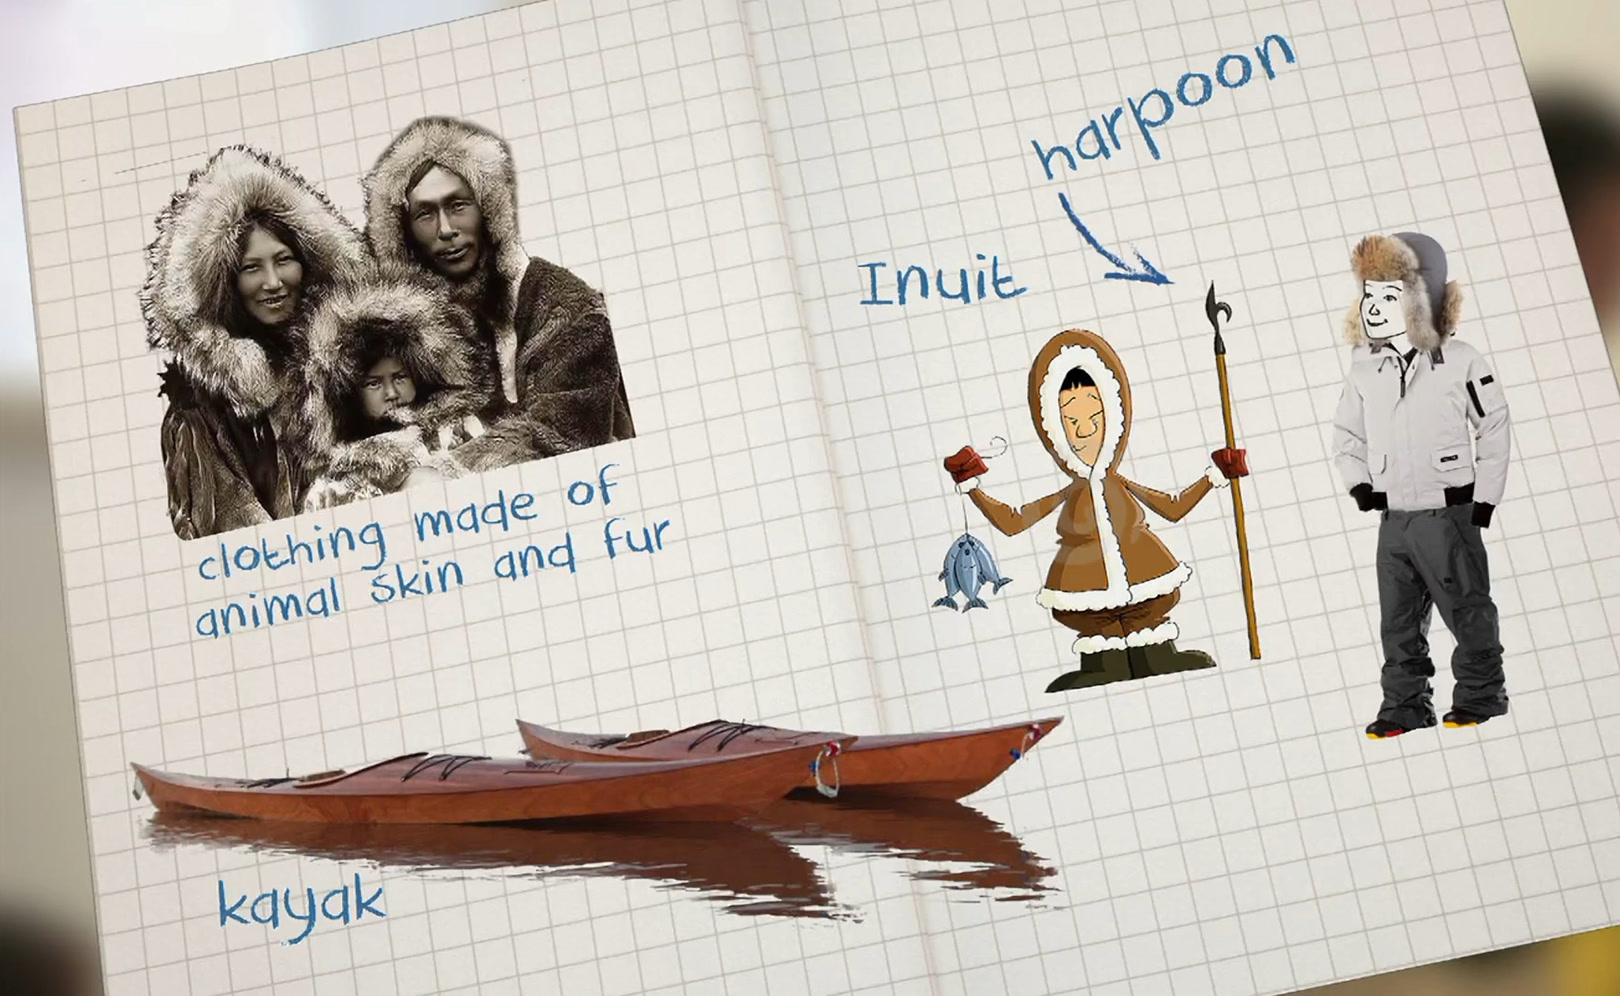 clothing made of
animal skin and fur
kayak
harpoon
Inuit